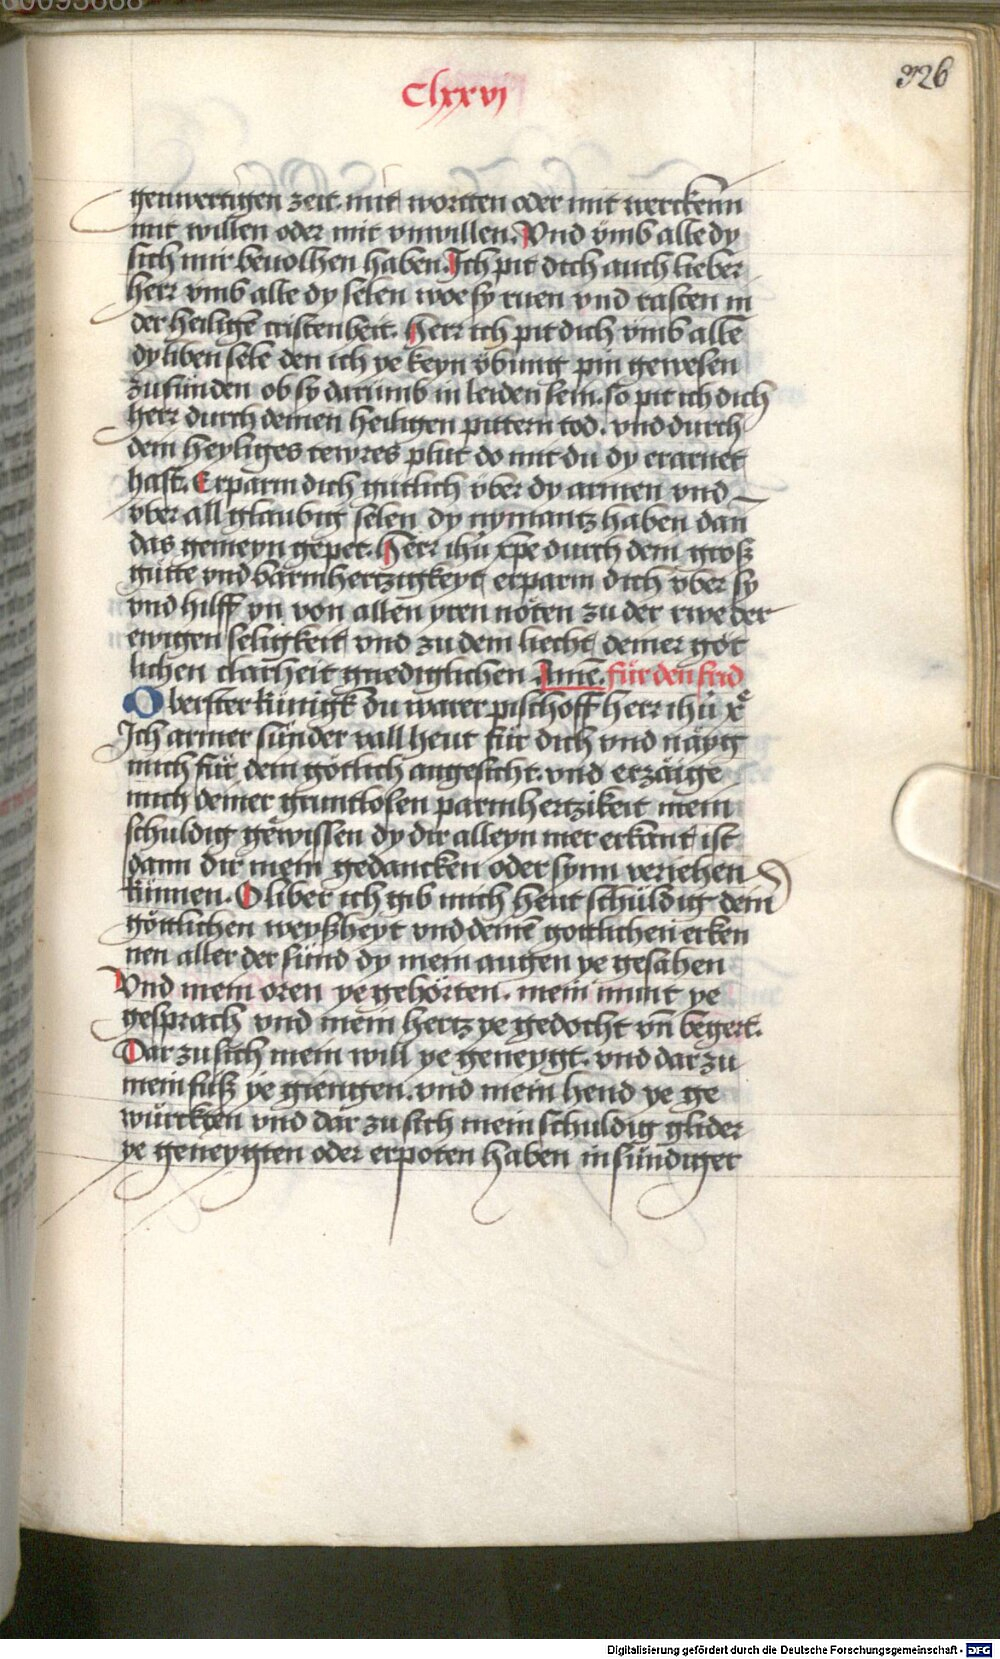 00095668
Clxxvj
326
genwertigen zeit. mit wortten oder mit werckenn
mit willen oder mit vnwillen. Vnd vmb alle dy
sich mir beuolhen haben. Ich pit dich auch lieber
herr vmb alle dy selen woe sy ruen vnd rasten in
der heiligē cristenheit. Herr ich pit dich vmb alle
dy liben sele den ich ye keyn vbung pin gewesen
zu sünden ob sy darumb in leiden sein. so pit ich dich
herr durch deinen heiligen pittern tod. vnd durch
dein heyliges tewres plut do mit du dy erarnet
hast. Erparm dich gütlich vber dy armen vnd
vber all glaubig selen dy nymantz haben dan̄
das gemeyn gepet. Herr ihū xp̄e durch dein groß
gütte vnd barmhertzigkeyt erparm dich vber sy
vnd hilff yn von allen yren nöten zu der rwe der
ewigen seligkeit vnd zu dem liecht deiner göt
lichen clarheit gnediglichen Amē. für den frid
Oberster künigk du warer pischoff herr ihū x̄
Ich armer sünder vall heut für dich vnd näyg
mich für dein götlich angesicht. vnd erzäige
mich deiner gruntlosen parmhertzikeit mein
schuldig gewissen dy dir alleyn mer erkant ist
dann dir mein gedancken oder synn veriehen
künnen. O liber ich gib mich heut schüldig dein
göttlichen weyßheyt vnd deinē gottlichen erken
nen aller der sünd dy mein augen ye gesahen
Vnd mein oren ye gehörten. mein munt ye
gesprach vnd mein hertz ye gedocht vn̄ begert.
Dar zu sich mein will ye geneygt. vnd dar zu
mein füß ye giengen. vnd mein hend ye ge
würckten vnd dar zu sich mein schuldig glider
ye geneygten oder erpoten haben in sündiger
Digitalisierung gefördert durch die Deutsche Forschungsgemeinschaft - DFG